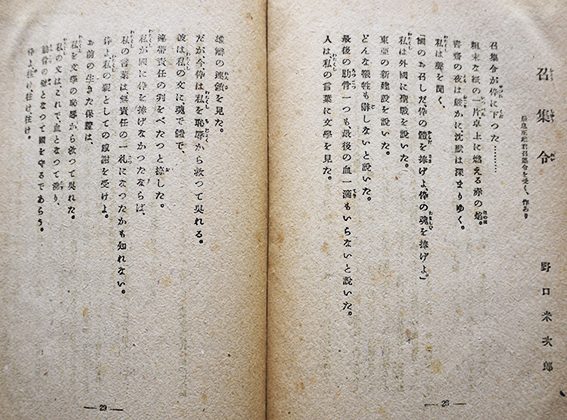 召集令
野口米次郎
召集令が伜に下つた………
粗末な紙の一片卓上に燃える赤の焔。
書齋の夜は靜かに沈默は深まりゆく。
私は聲を聞く、
『國のお召しだ伜の體を捧げよ、伜の魂を捧げよ。』
私は外國に聖戰を說いた。
東亞の新建設を說いた。
どんな犧牲も辭しないと說いた。
最後の肋骨一つも最後の血一滴もいらないと說いた。
人は私の言葉に文學を見た。
雄辯の連鎖を見た。
だが今伜は私を恥辱から救つて吳れる。
彼は私の文に魂で證で、
連帶責任の判をべたつと捺した。
私が國に伜を捧げなかつたならば、
私の言葉は無責任の一札になつたかも知れない。
伜よ私の親としての感謝を受けよ。
お前の生きた保證は、
私を文學の恥辱から救つて吳れた。
私の文はこれで、血となつて滴り、
肋骨の楯となつて國を守るであらう。
伜よ、征け征け。
28
29